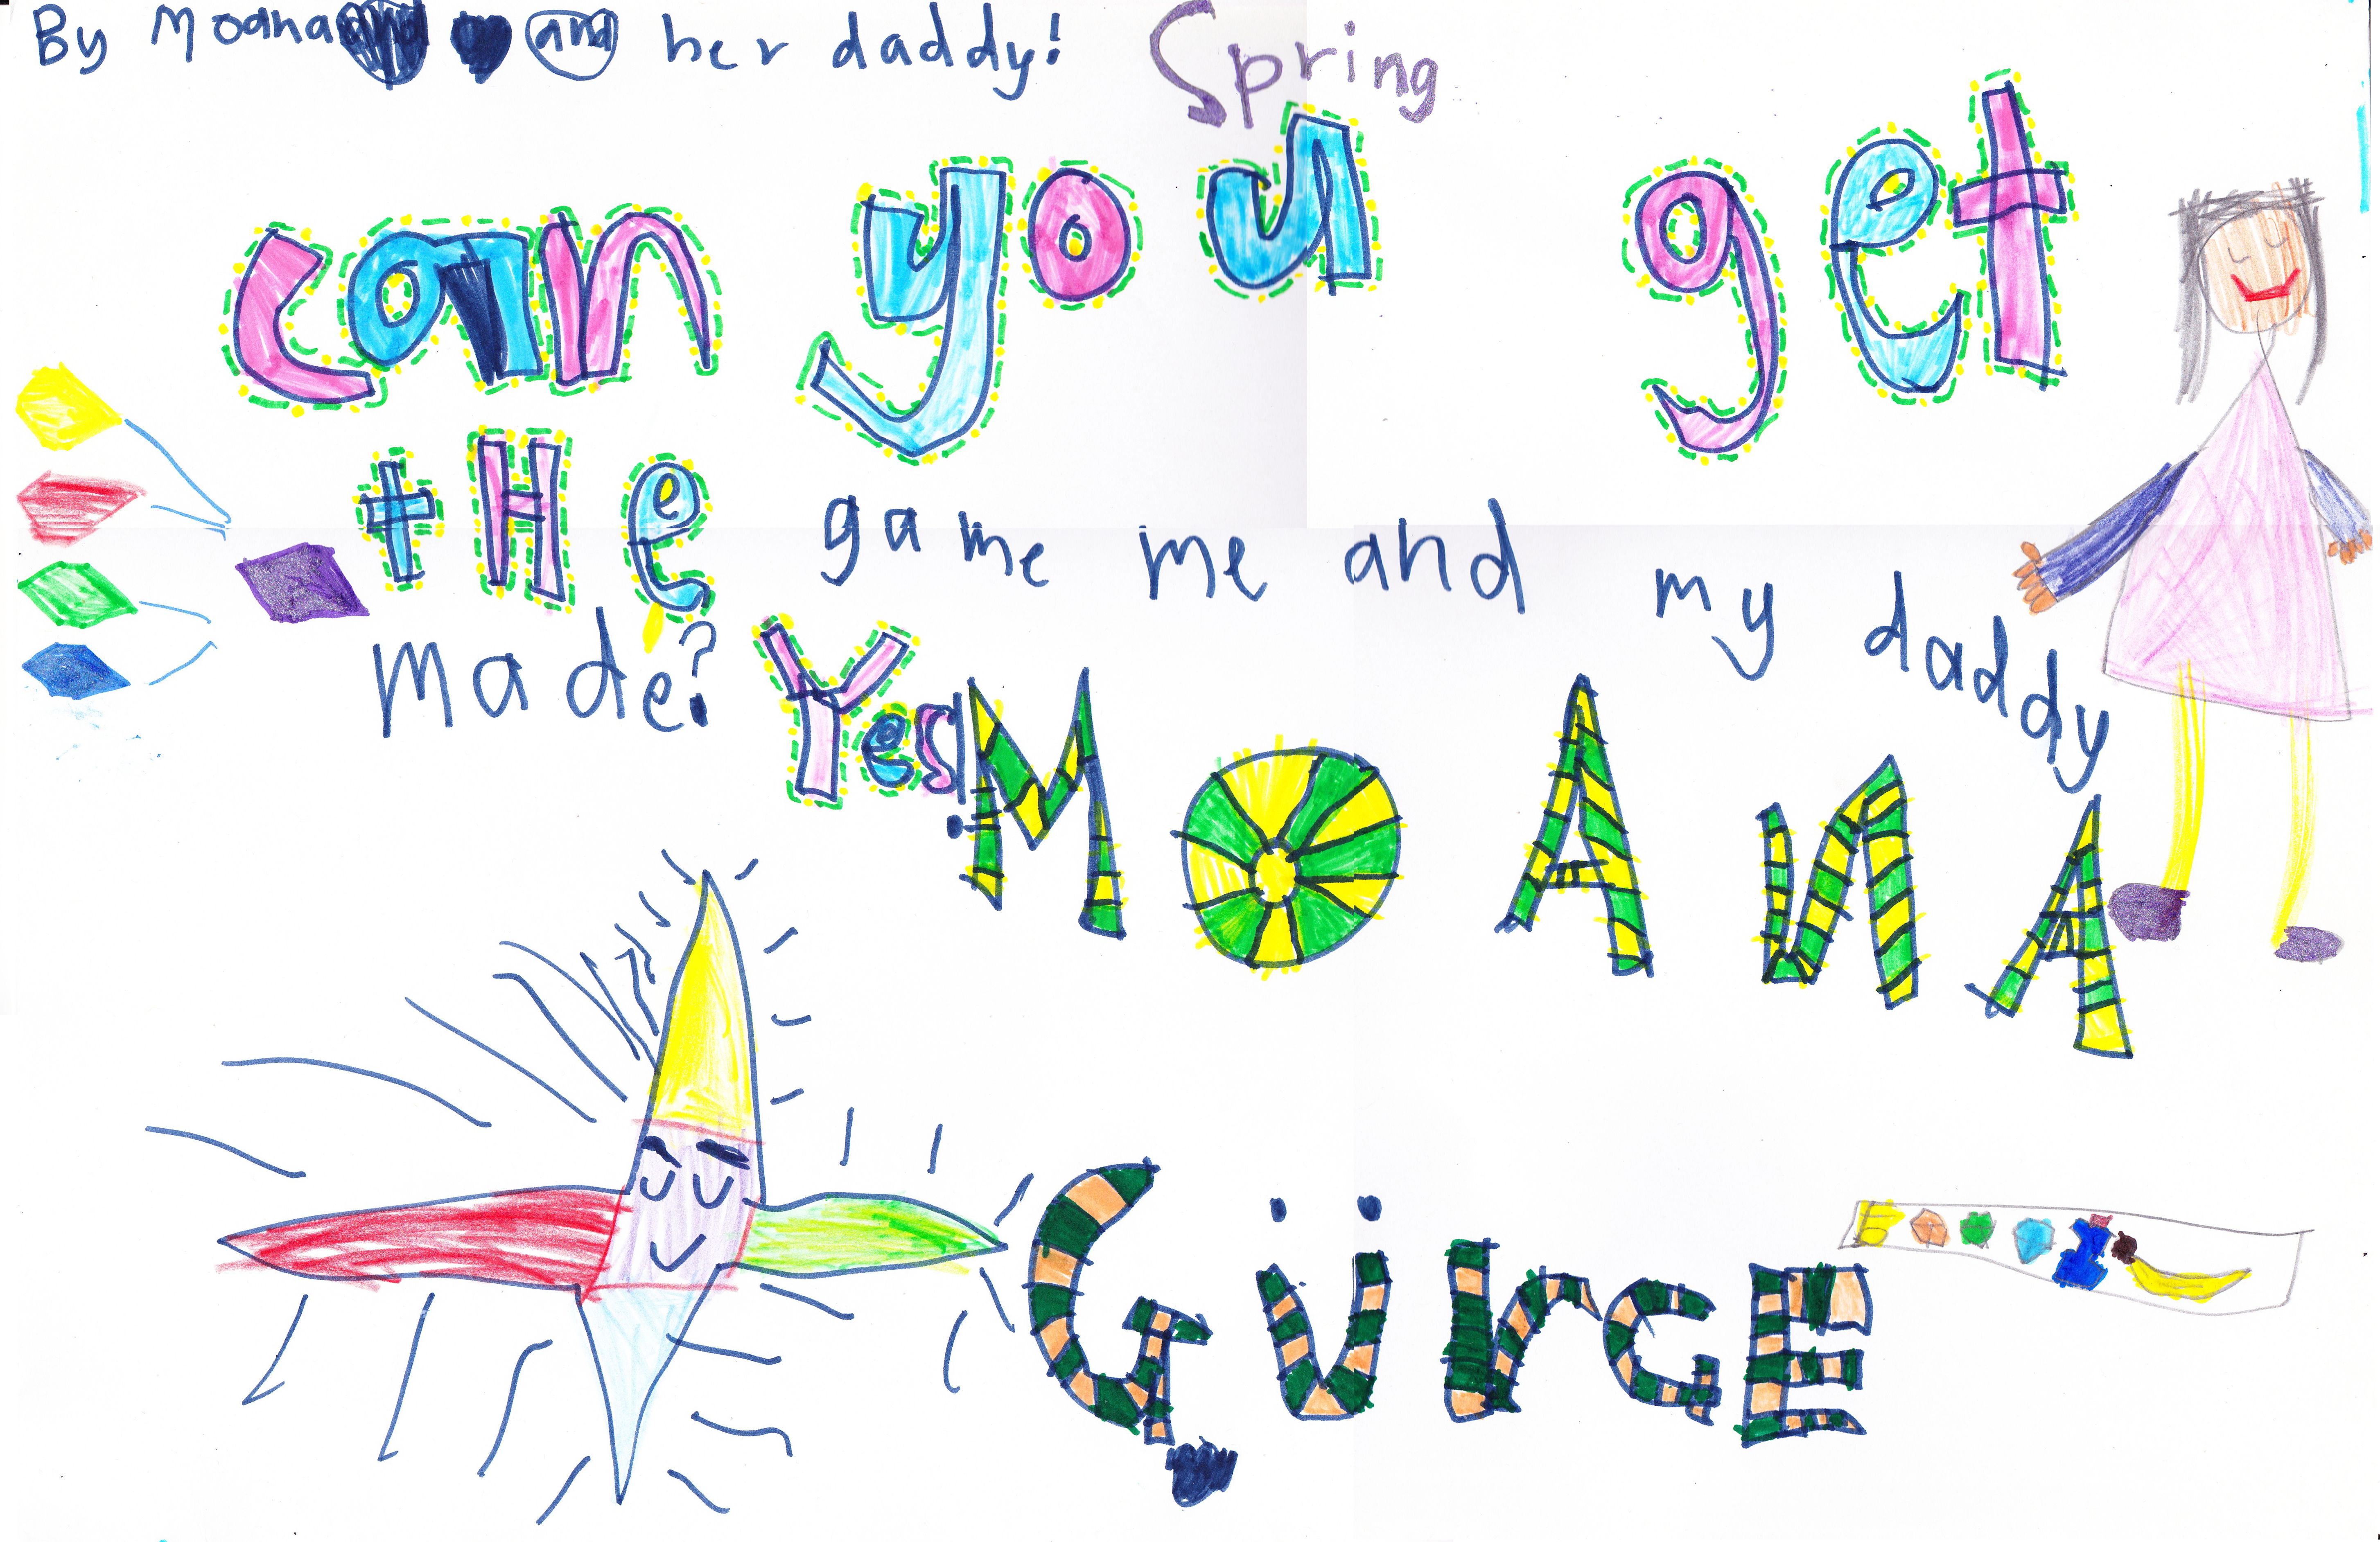 By Moana and her daddy!
Spring
can you get
tHe game me and my daddy
made? Yes!
MOANA
GürcE